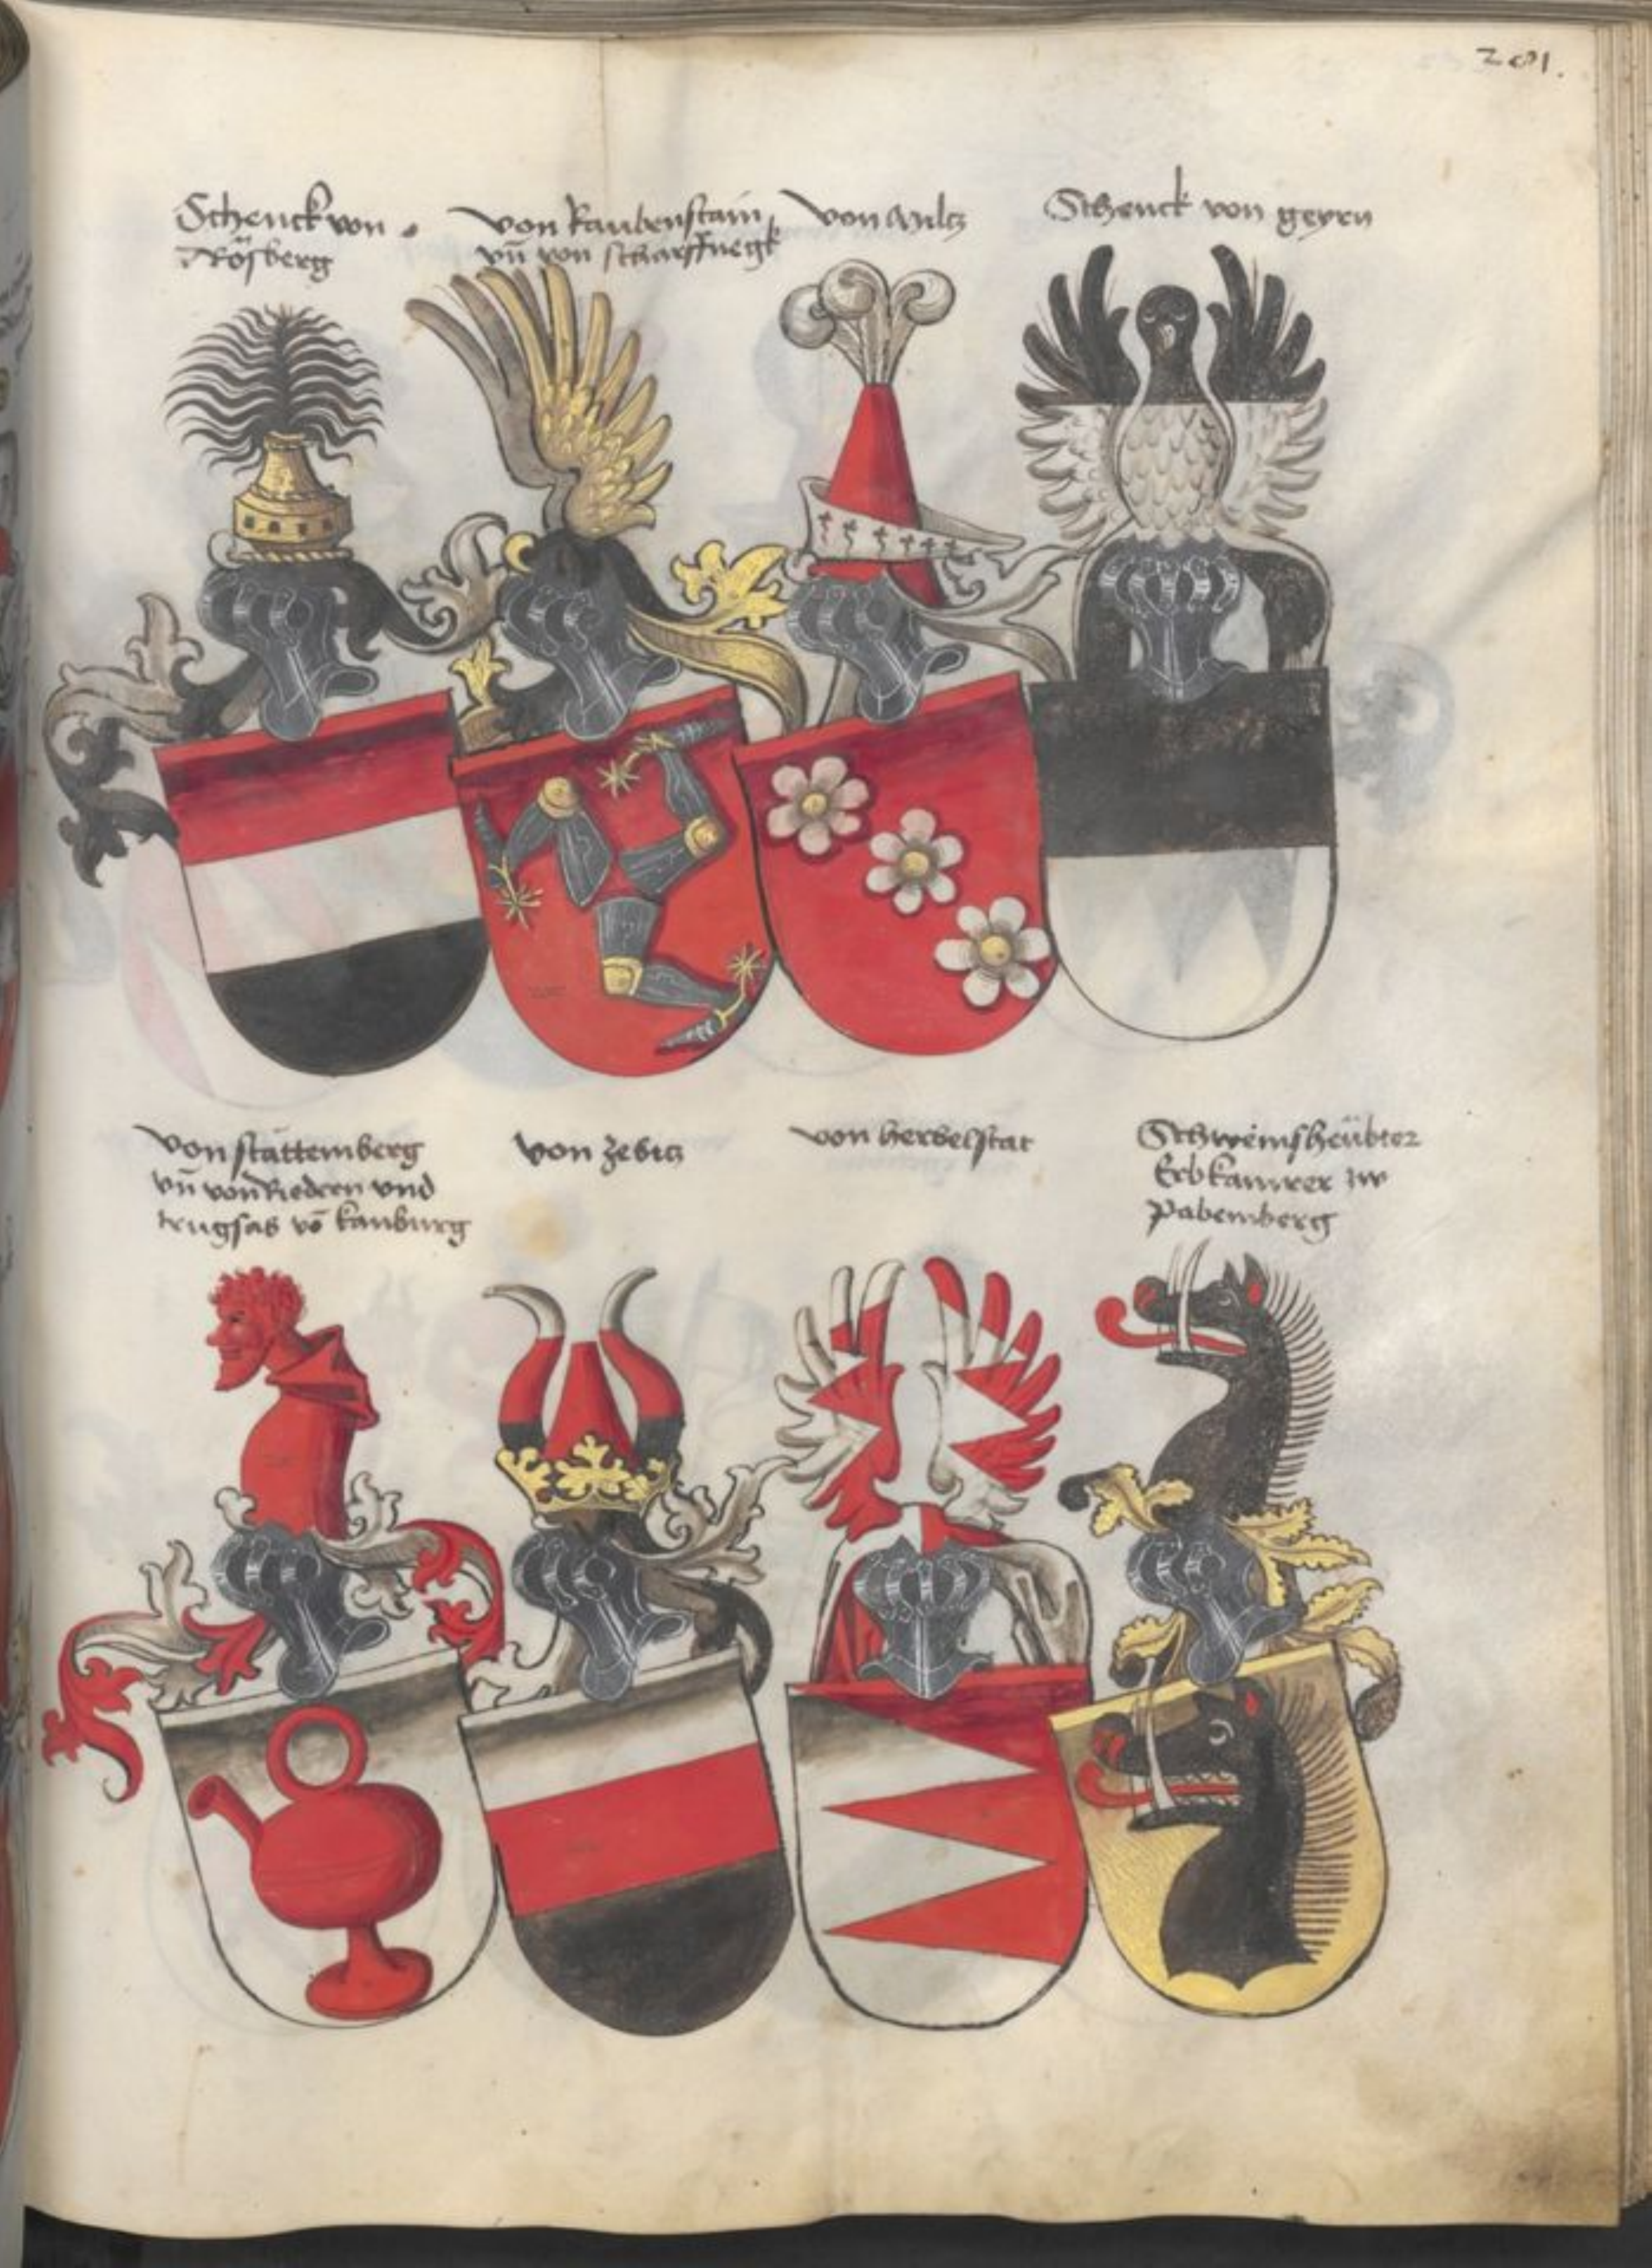 281.
Schenck von
Rösberg
von Raubenstain
vn̄ von scharffnegk
von
Schenck von geyrn
von stättemberg
vn̄ von Riedern vnd
trugsas vō kanburg
von zebitz
von herbelstat
Schweinsheübter
Erbkamrer zw
Pabemberg